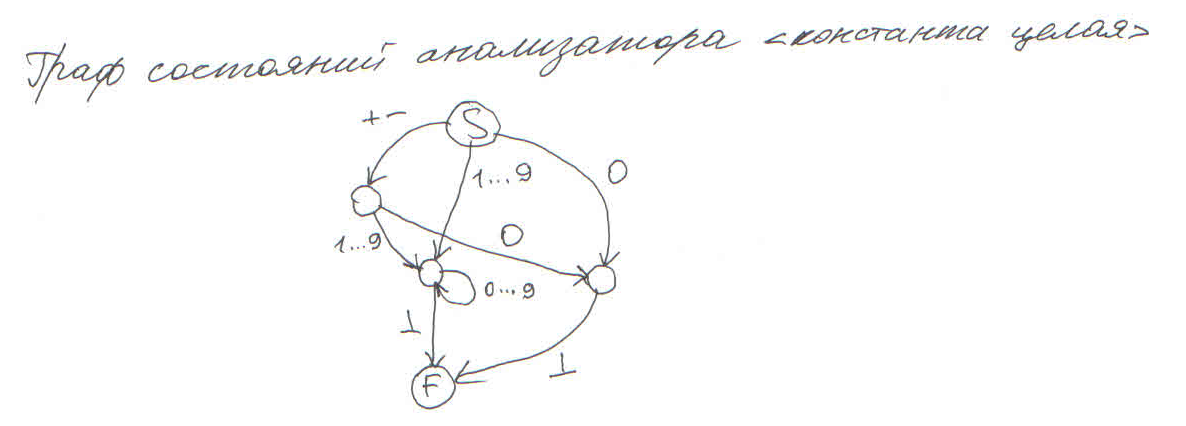 Граф состояний анализатора <константа целая>
+-
S
1...9
0
1...9
0
0...9
⊥
⊥
F